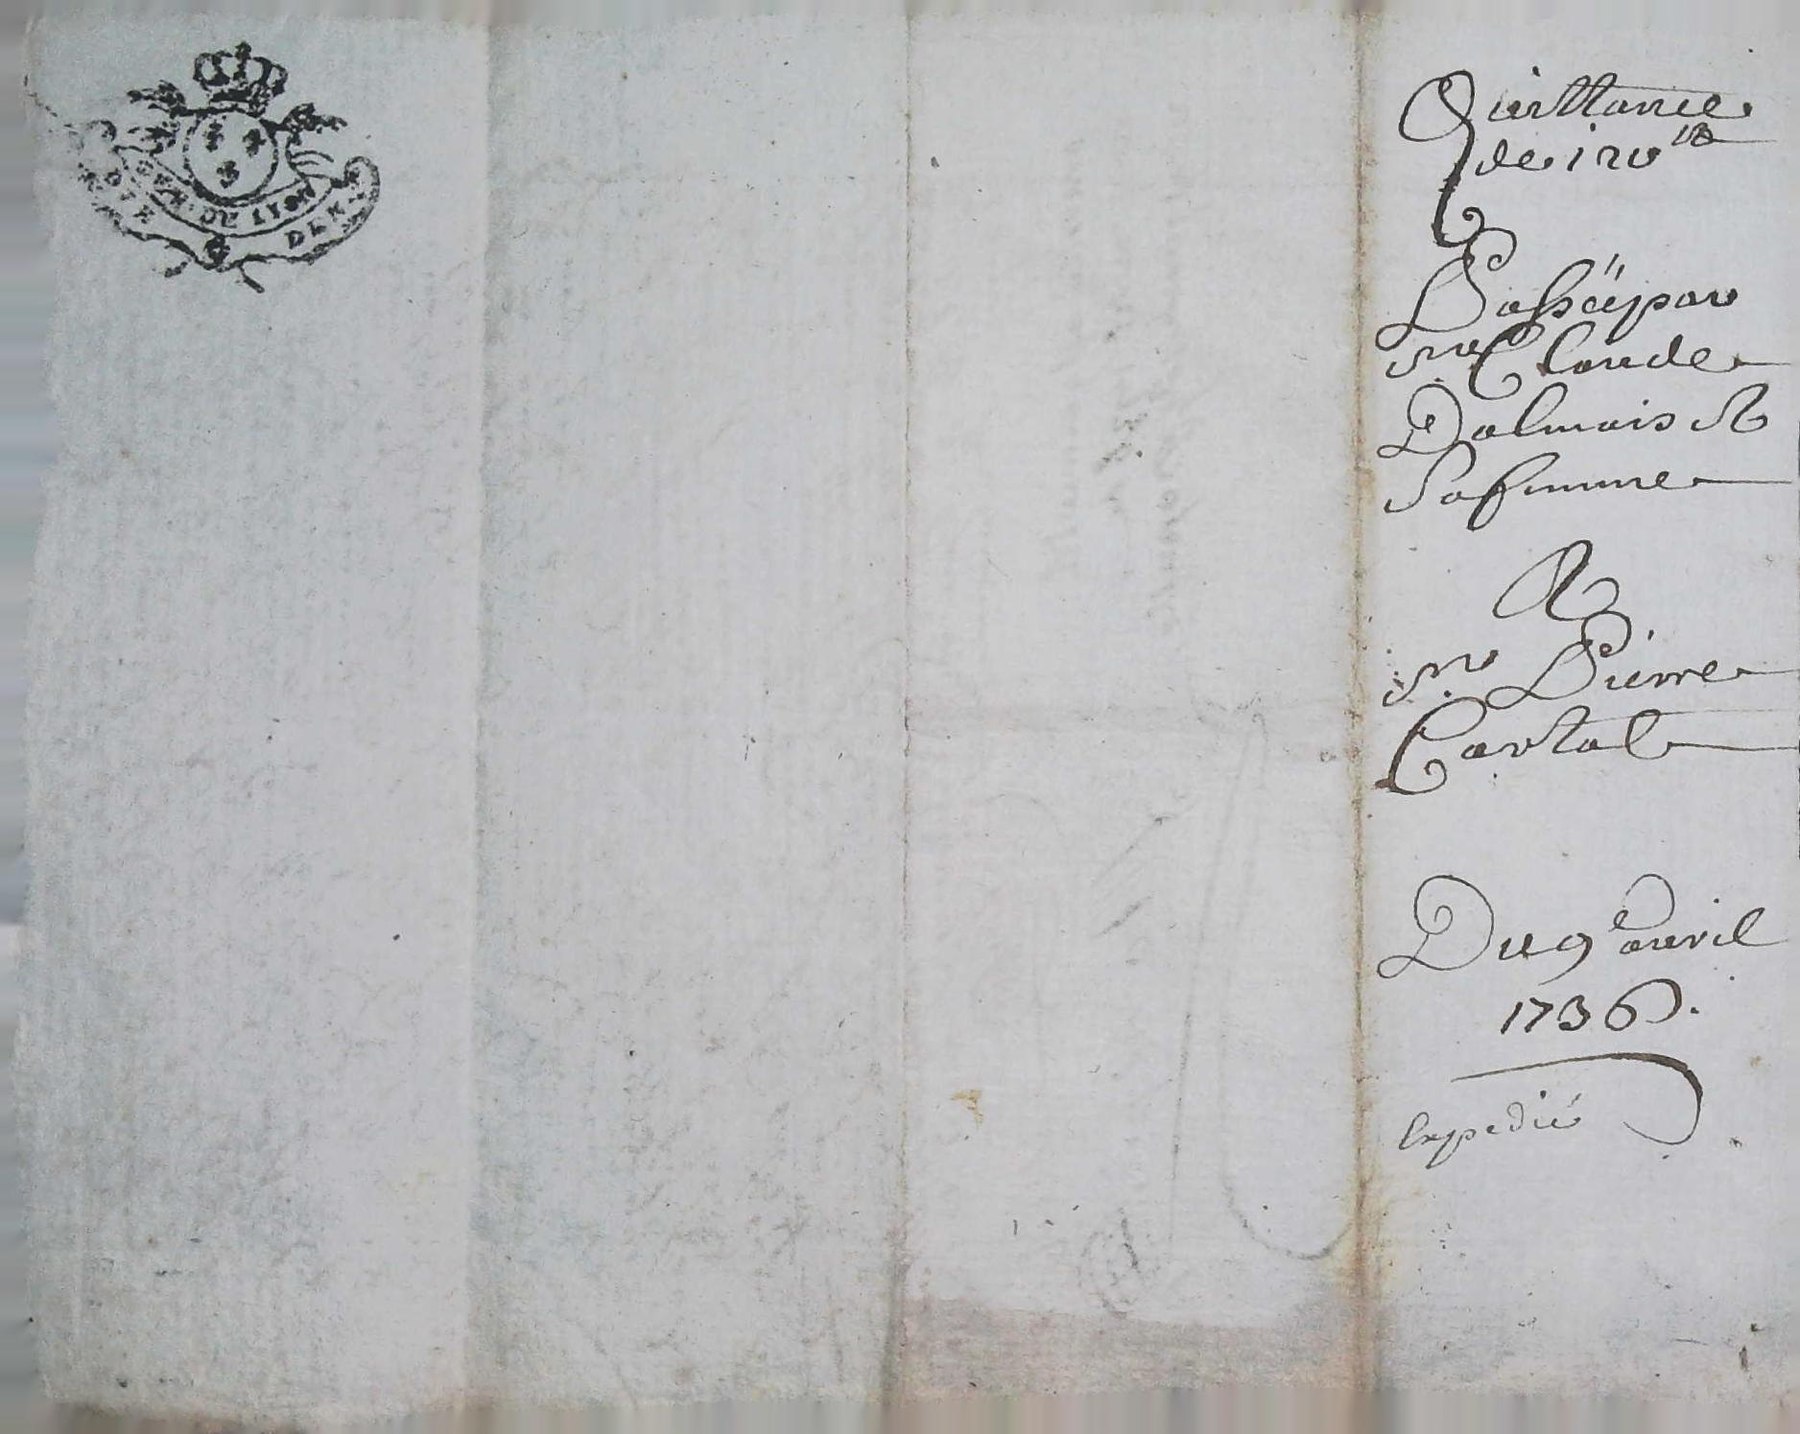 GEN. DE LYON
DEN.
Quittance
de 120 lb
Passé par
Sr Claude
Dalmais &
Sa femme
A
Sr Pierre
Cartal
Du 9e avril
1736.
Expedié